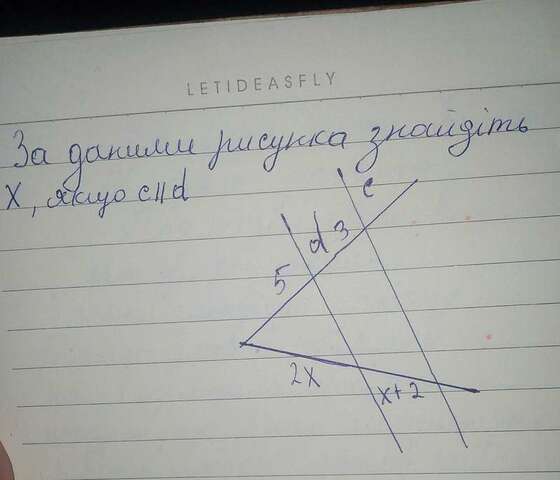 LETIDEASFLY
За даними рисунка знайдіть
х, якщо c||d
c
d 3
5
2x
x+2